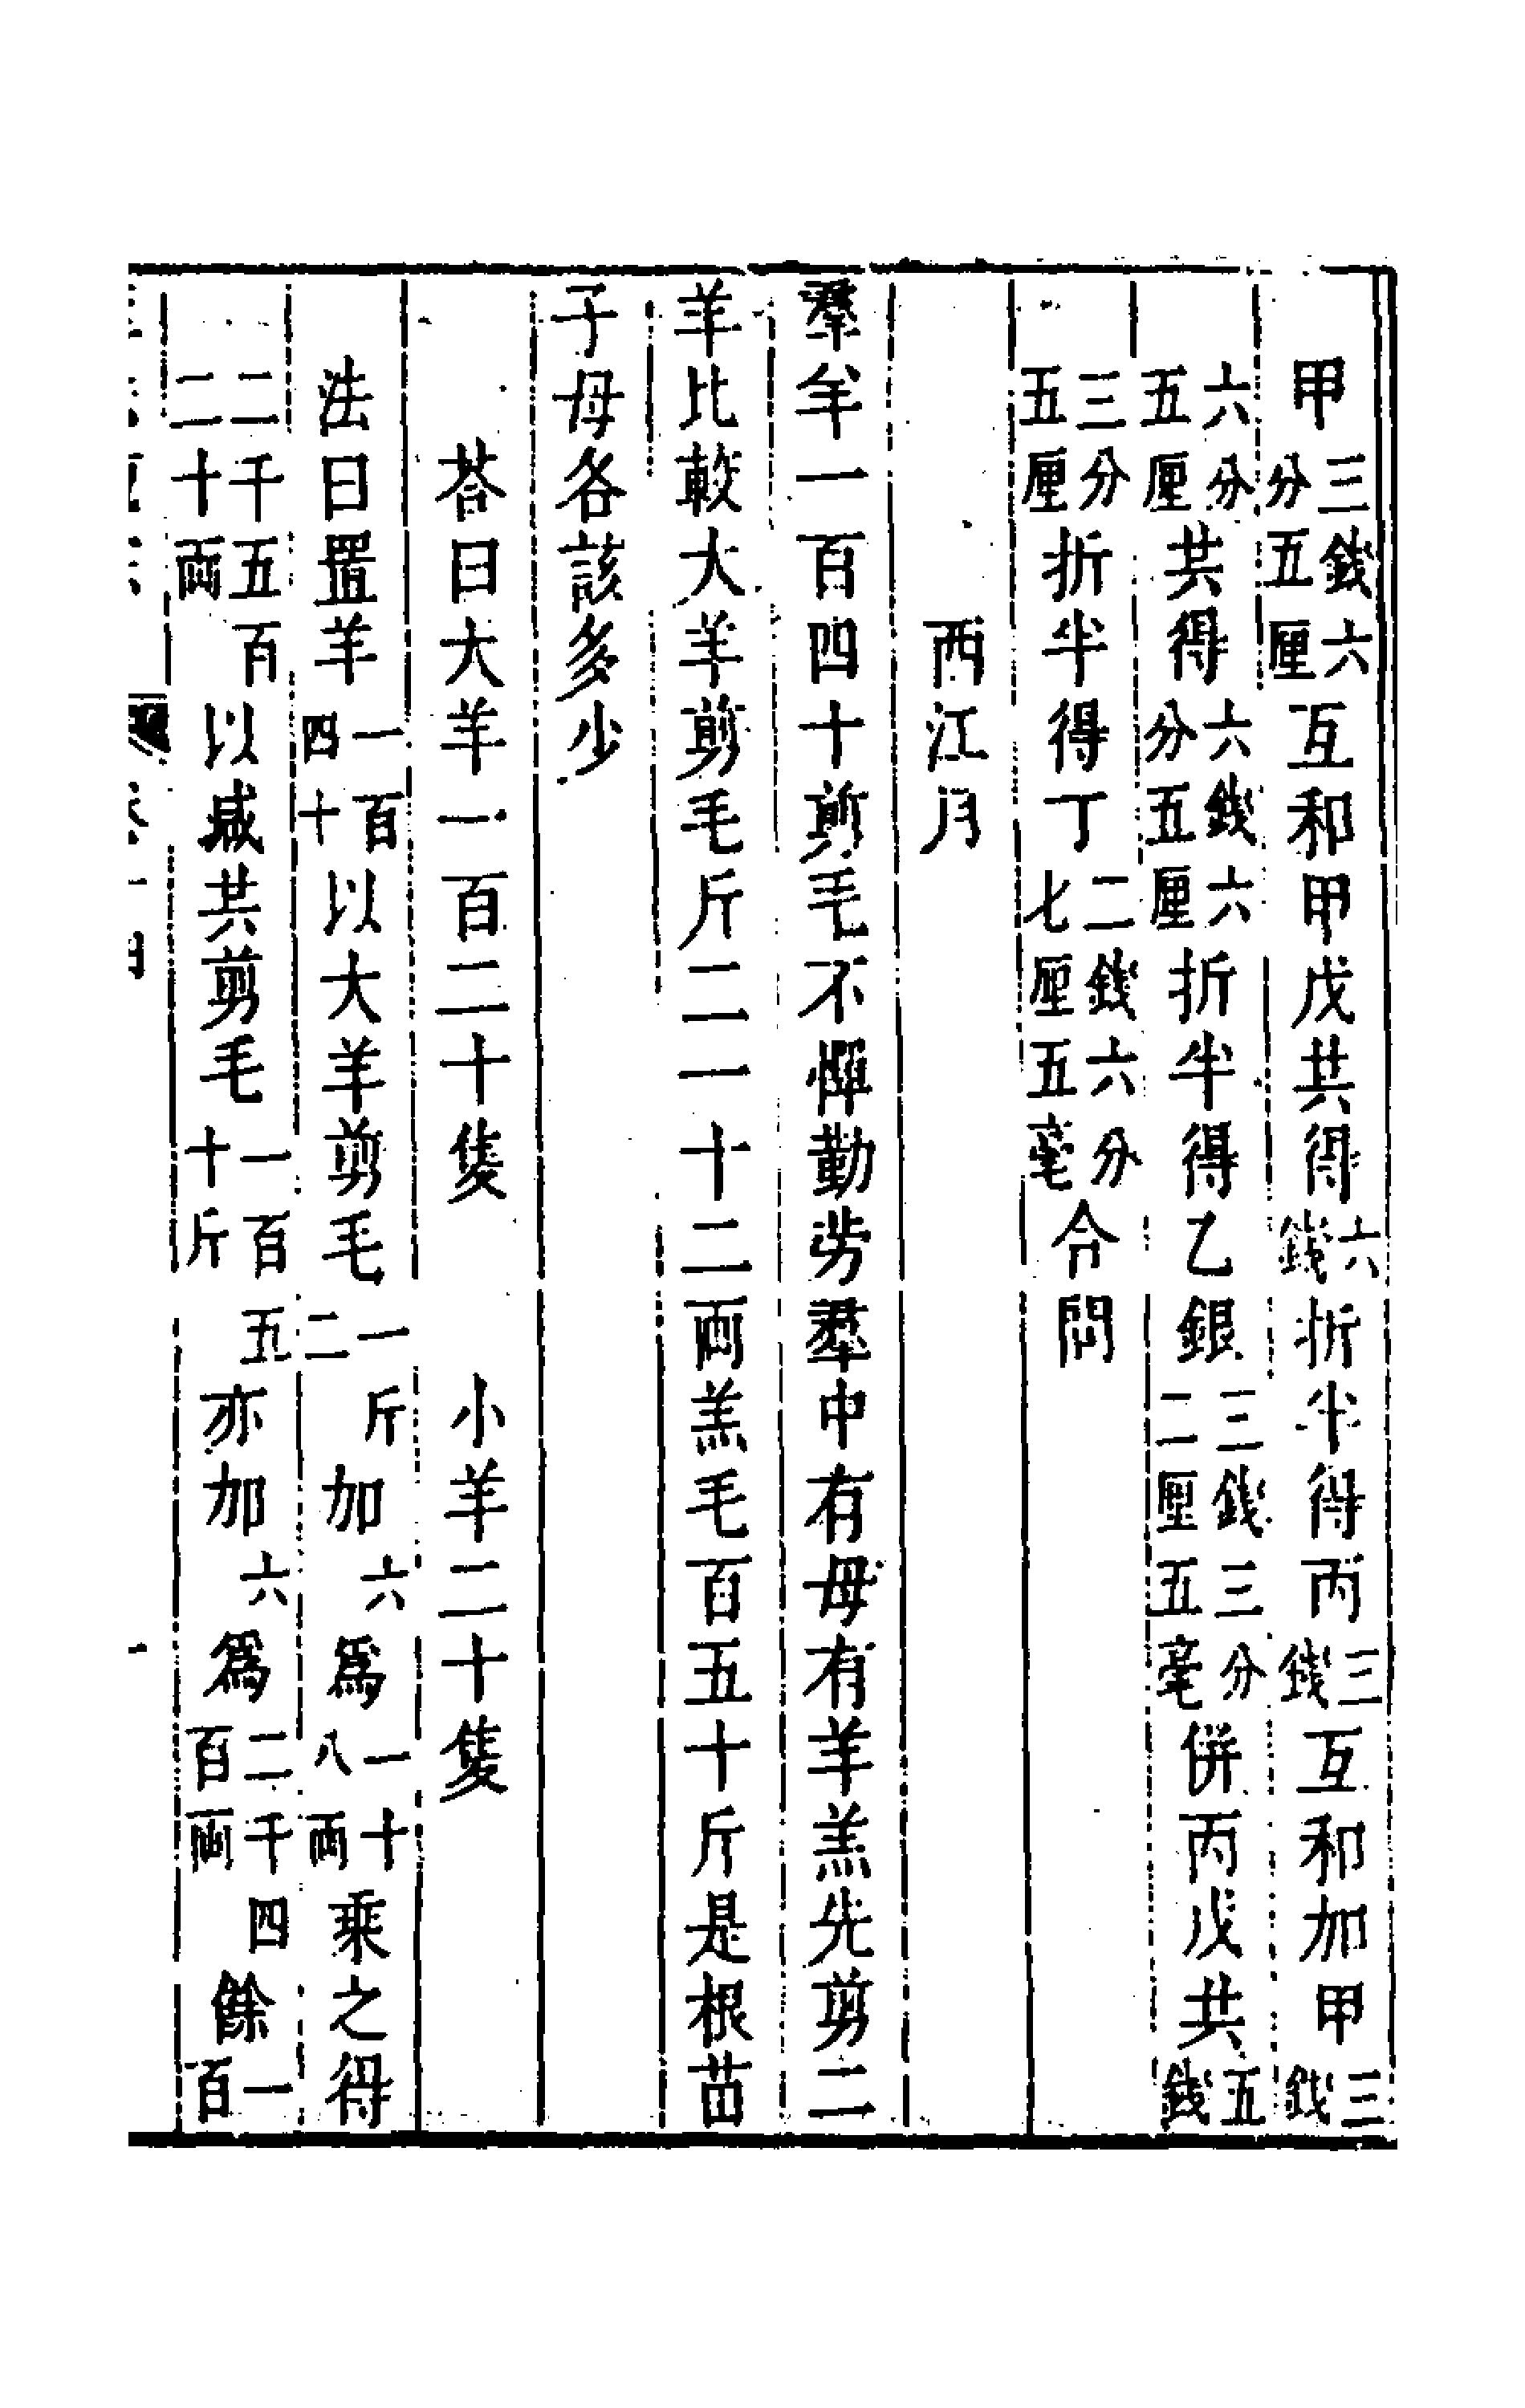 甲三錢六分五厘互和甲戊共得六錢折半得丙三錢互和加甲三錢
六分五厘共得六錢六分五厘折半得乙銀三錢三分二厘五毫併丙戊共五錢
三分五厘折半得丁二錢六分七厘五毫合問
西江月
羣羊一百四十剪毛不憚勤劳羣中有母有羊羔先剪二
羊比較大羊剪毛斤二一十二兩羔毛百五十斤是根苗
子母各該多少
荅曰大羊一百二十隻　小羊二十隻
法曰置羊一百四十以大羊剪毛一斤二加六爲一十八兩乘之得
二千五百二十兩以减共剪毛一百五十斤亦加六爲二千四百兩餘一百